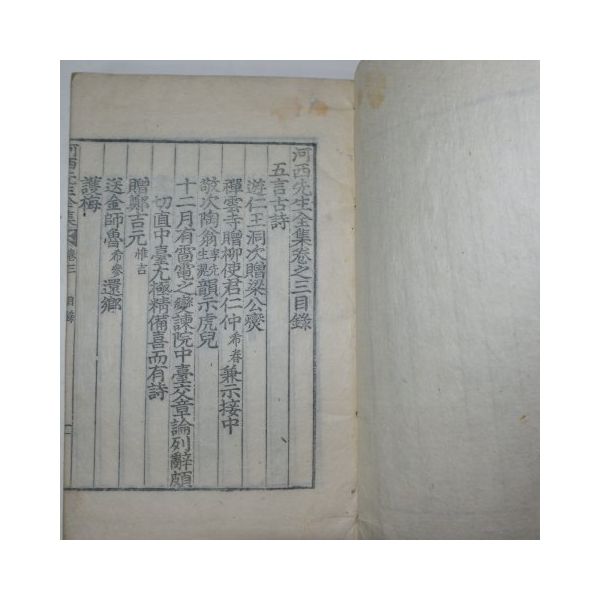 河西先生全集卷之三目錄
五言古詩
遊仁王洞次贈梁公燮
禪雲寺贈柳使君仁仲希春兼示接中
敬次陶翁李先生滉韻示虎兒
十二月有雷電之變諫院中臺交章論列辭頗
切直中臺尤極精備喜而有詩
贈鄭吉元惟吉
送金師魯希參還鄉
護梅
河西先生全集 卷三 目錄 一